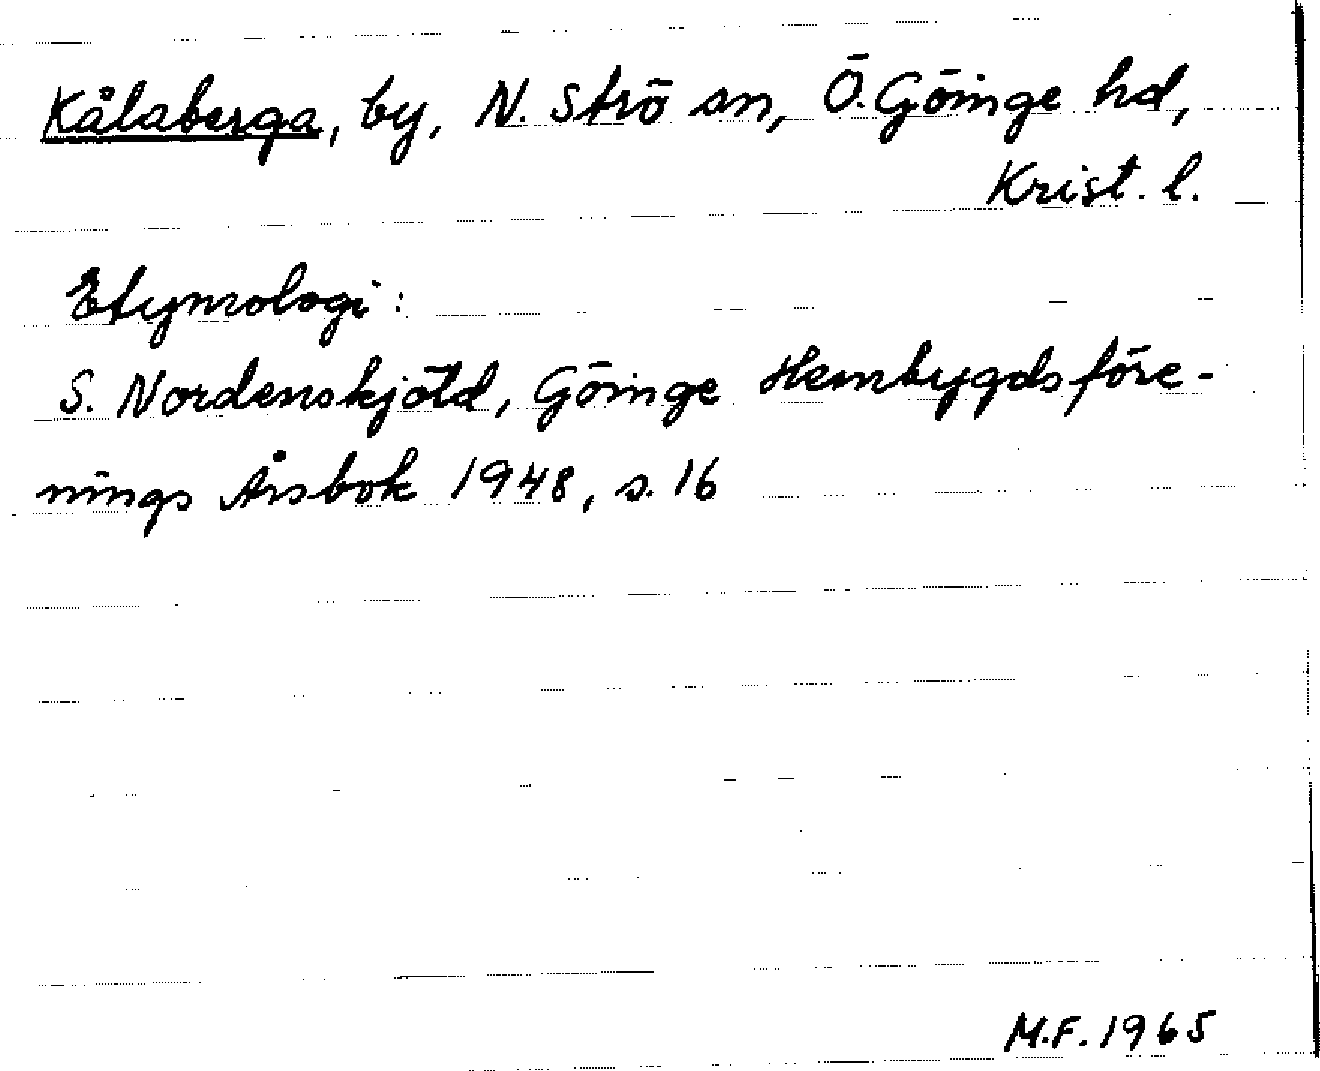 Kålaberga, by, N. Strö sn, Ö. Göinge hd,
Krist. l.
Etymologi:
S. Nordenskjöld, Göinge Hembygdsföre-
nings Årsbok 1948, s. 16
M.F. 1965